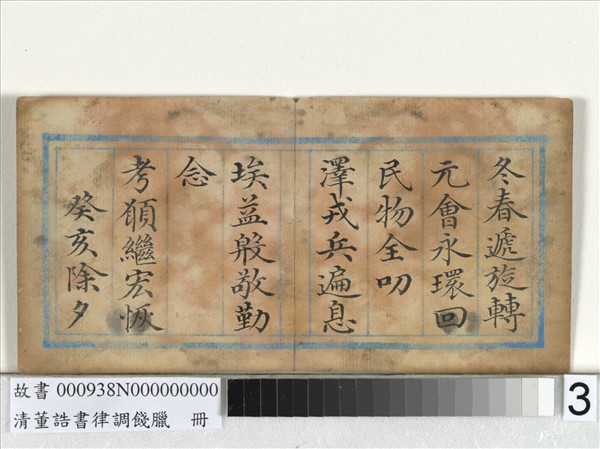 冬春遞旋轉
元會永環回
民物全叨
澤戎兵遍息
埃益殷敬勤
念
考頟繼宏恢
癸亥除夕
故書 000938N000000000
清董誥書律調餞臘 冊
3